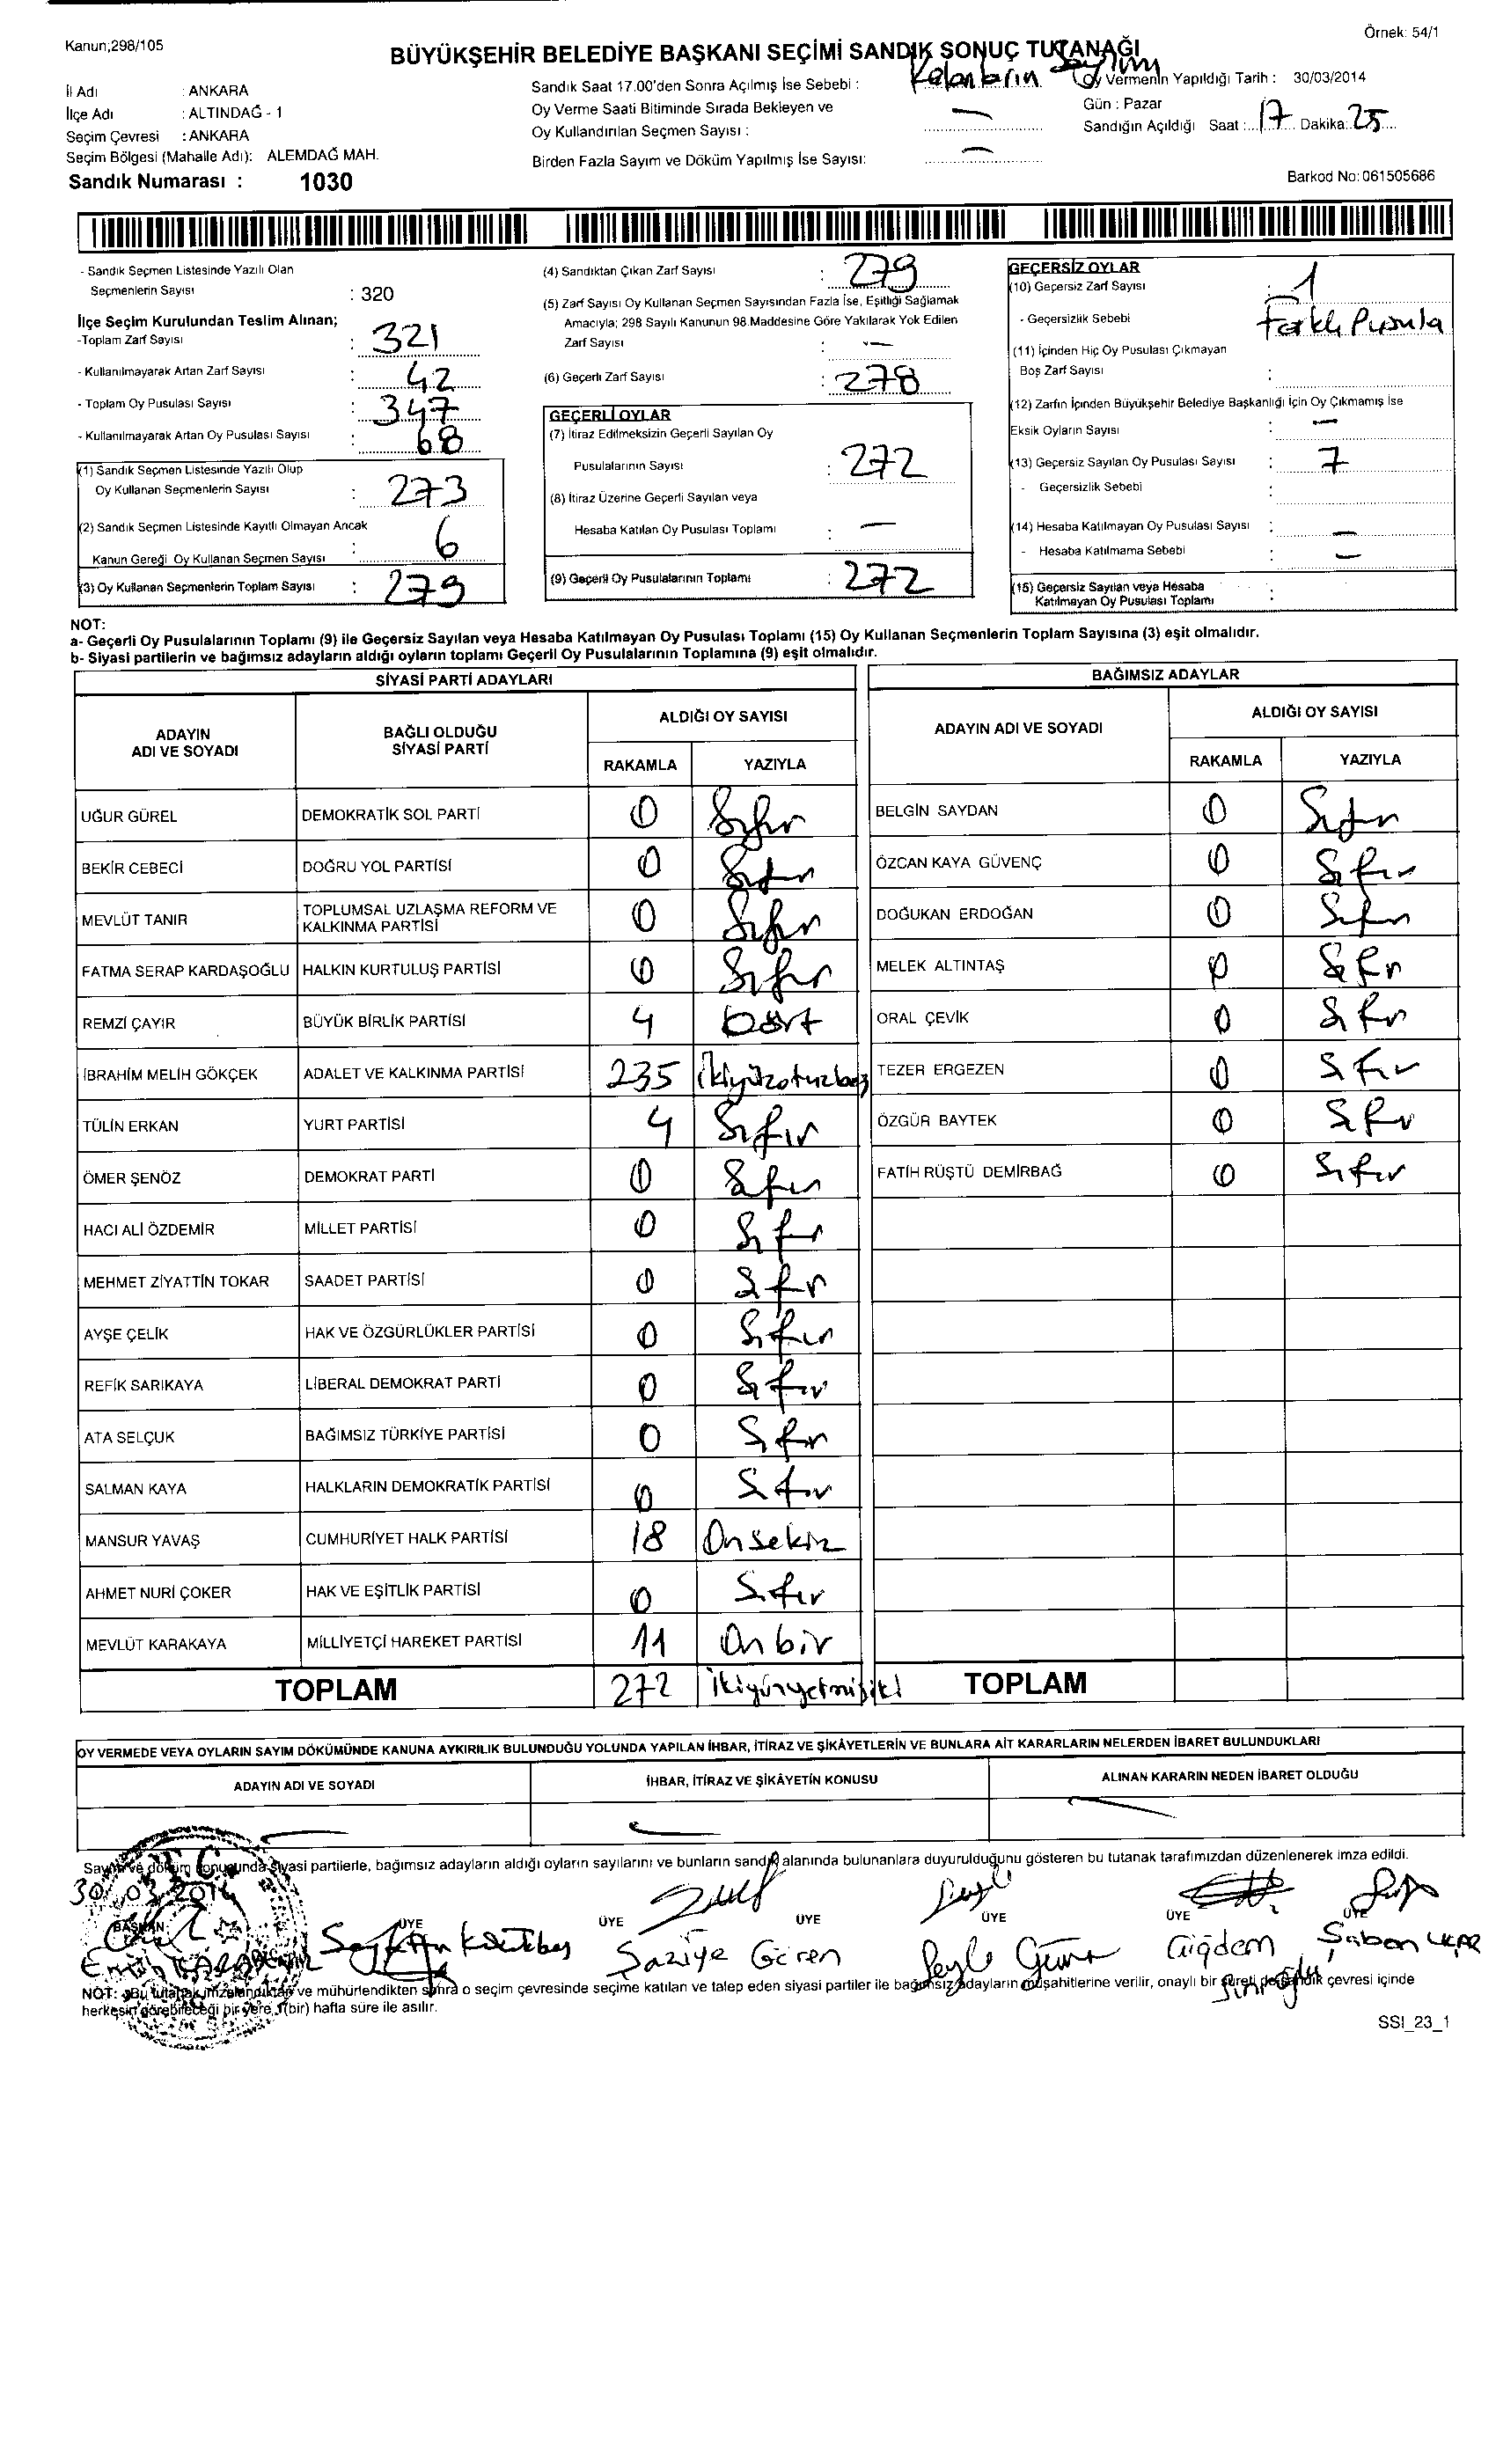 Kanun;298/105
Örnek: 54/1
BÜYÜKŞEHİR BELEDİYE BAŞKANI SEÇİMİ SANDIK SONUÇ TUTANAĞI
İl Adı : ANKARA
İlçe Adı : ALTINDAĞ - 1
Seçim Çevresi : ANKARA
Seçim Bölgesi (Mahalle Adı): ALEMDAĞ MAH.
Sandık Numarası : 1030
Sandık Saat 17.00'den Sonra Açılmış İse Sebebi :
Oy Verme Saati Bitiminde Sırada Bekleyen ve
Oy Kullandırılan Seçmen Sayısı : —
Birden Fazla Sayım ve Döküm Yapılmış İse Sayısı: —
Oy Vermenin Yapıldığı Tarih : 30/03/2014
Gün : Pazar
Sandığın Açıldığı Saat : 17 Dakika: 25
Barkod No: 061505686
- Sandık Seçmen Listesinde Yazılı Olan
Seçmenlerin Sayısı : 320
İlçe Seçim Kurulundan Teslim Alınan;
-Toplam Zarf Sayısı : 321
- Kullanılmayarak Artan Zarf Sayısı : 42
- Toplam Oy Pusulası Sayısı : 347
- Kullanılmayarak Artan Oy Pusulası Sayısı : 68
(1) Sandık Seçmen Listesinde Yazılı Olup
Oy Kullanan Seçmenlerin Sayısı : 273
(2) Sandık Seçmen Listesinde Kayıtlı Olmayan Ancak
Kanun Gereği Oy Kullanan Seçmen Sayısı : 6
(3) Oy Kullanan Seçmenlerin Toplam Sayısı : 279
(4) Sandıktan Çıkan Zarf Sayısı : 279
(5) Zarf Sayısı Oy Kullanan Seçmen Sayısından Fazla İse, Eşitliği Sağlamak
Amacıyla; 298 Sayılı Kanunun 98.Maddesine Göre Yakılarak Yok Edilen
Zarf Sayısı : —
(6) Geçerli Zarf Sayısı : 278
GEÇERLİ OYLAR
(7) İtiraz Edilmeksizin Geçerli Sayılan Oy
Pusulalarının Sayısı : 272
(8) İtiraz Üzerine Geçerli Sayılan veya
Hesaba Katılan Oy Pusulası Toplamı : —
(9) Geçerli Oy Pusulalarının Toplamı : 272
GEÇERSİZ OYLAR
(10) Geçersiz Zarf Sayısı : 1
- Geçersizlik Sebebi Farklı Pusula
(11) İçinden Hiç Oy Pusulası Çıkmayan
Boş Zarf Sayısı :
(12) Zarfın İçinden Büyükşehir Belediye Başkanlığı İçin Oy Çıkmamış İse
Eksik Oyların Sayısı : —
(13) Geçersiz Sayılan Oy Pusulası Sayısı : 7
- Geçersizlik Sebebi :
(14) Hesaba Katılmayan Oy Pusulası Sayısı : —
- Hesaba Katılmama Sebebi : —
(15) Geçersiz Sayılan veya Hesaba
Katılmayan Oy Pusulası Toplamı :
NOT:
a- Geçerli Oy Pusulalarının Toplamı (9) ile Geçersiz Sayılan veya Hesaba Katılmayan Oy Pusulası Toplamı (15) Oy Kullanan Seçmenlerin Toplam Sayısına (3) eşit olmalıdır.
b- Siyasi partilerin ve bağımsız adayların aldığı oyların toplamı Geçerli Oy Pusulalarının Toplamına (9) eşit olmalıdır.
SİYASİ PARTİ ADAYLARI
ADAYIN ADI VE SOYADI BAĞLI OLDUĞU SİYASİ PARTİ ALDIĞI OY SAYISI
RAKAMLA YAZIYLA
UĞUR GÜREL DEMOKRATİK SOL PARTİ 0 Sıfır
BEKİR CEBECİ DOĞRU YOL PARTİSİ 0 Sıfır
MEVLÜT TANIR TOPLUMSAL UZLAŞMA REFORM VE KALKINMA PARTİSİ 0 Sıfır
FATMA SERAP KARDAŞOĞLU HALKIN KURTULUŞ PARTİSİ 0 Sıfır
REMZİ ÇAYIR BÜYÜK BİRLİK PARTİSİ 4 Dört
İBRAHİM MELİH GÖKÇEK ADALET VE KALKINMA PARTİSİ 235 ikiyüzotuzbeş
TÜLİN ERKAN YURT PARTİSİ 4 Sıfır
ÖMER ŞENÖZ DEMOKRAT PARTİ 0 Sıfır
HACI ALİ ÖZDEMİR MİLLET PARTİSİ 0 Sıfır
MEHMET ZİYATTİN TOKAR SAADET PARTİSİ 0 Sıfır
AYŞE ÇELİK HAK VE ÖZGÜRLÜKLER PARTİSİ 0 Sıfır
REFİK SARIKAYA LİBERAL DEMOKRAT PARTİ 0 Sıfır
ATA SELÇUK BAĞIMSIZ TÜRKİYE PARTİSİ 0 Sıfır
SALMAN KAYA HALKLARIN DEMOKRATİK PARTİSİ 0 Sıfır
MANSUR YAVAŞ CUMHURİYET HALK PARTİSİ 18 Onsekiz
AHMET NURİ ÇOKER HAK VE EŞİTLİK PARTİSİ 0 Sıfır
MEVLÜT KARAKAYA MİLLİYETÇİ HAREKET PARTİSİ 11 Onbir
TOPLAM 272 ikiyüzyetmişiki
BAĞIMSIZ ADAYLAR
ADAYIN ADI VE SOYADI ALDIĞI OY SAYISI
RAKAMLA YAZIYLA
BELGİN SAYDAN 0 Sıfır
ÖZCAN KAYA GÜVENÇ 0 Sıfır
DOĞUKAN ERDOĞAN 0 Sıfır
MELEK ALTINTAŞ 0 Sıfır
ORAL ÇEVİK 0 Sıfır
TEZER ERGEZEN 0 Sıfır
ÖZGÜR BAYTEK 0 Sıfır
FATİH RÜŞTÜ DEMİRBAĞ 0 Sıfır
TOPLAM
OY VERMEDE VEYA OYLARIN SAYIM DÖKÜMÜNDE KANUNA AYKIRILIK BULUNDUĞU YOLUNDA YAPILAN İHBAR, İTİRAZ VE ŞİKÂYETLERİN VE BUNLARA AİT KARARLARIN NELERDEN İBARET BULUNDUKLARI
ADAYIN ADI VE SOYADI İHBAR, İTİRAZ VE ŞİKÂYETİN KONUSU ALINAN KARARIN NEDEN İBARET OLDUĞU
Sayım ve döküm sonucunda siyasi partilerle, bağımsız adayların aldığı oyların sayılarını ve bunların sandık alanında bulunanlara duyurulduğunu gösteren bu tutanak tarafımızdan düzenlenerek imza edildi.
30.03.2014
BAŞKAN ÜYE ÜYE ÜYE ÜYE ÜYE ÜYE
Şaziye Gören Çiğdem Şaban
NOT: Bu tutanak imzalandıktan ve mühürlendikten sonra o seçim çevresinde seçime katılan ve talep eden siyasi partiler ile bağımsız adayların müşahitlerine verilir, onaylı bir sureti de sandık çevresi içinde
herkesin görebileceği bir yere 1(bir) hafta süre ile asılır.
SSI_23_1